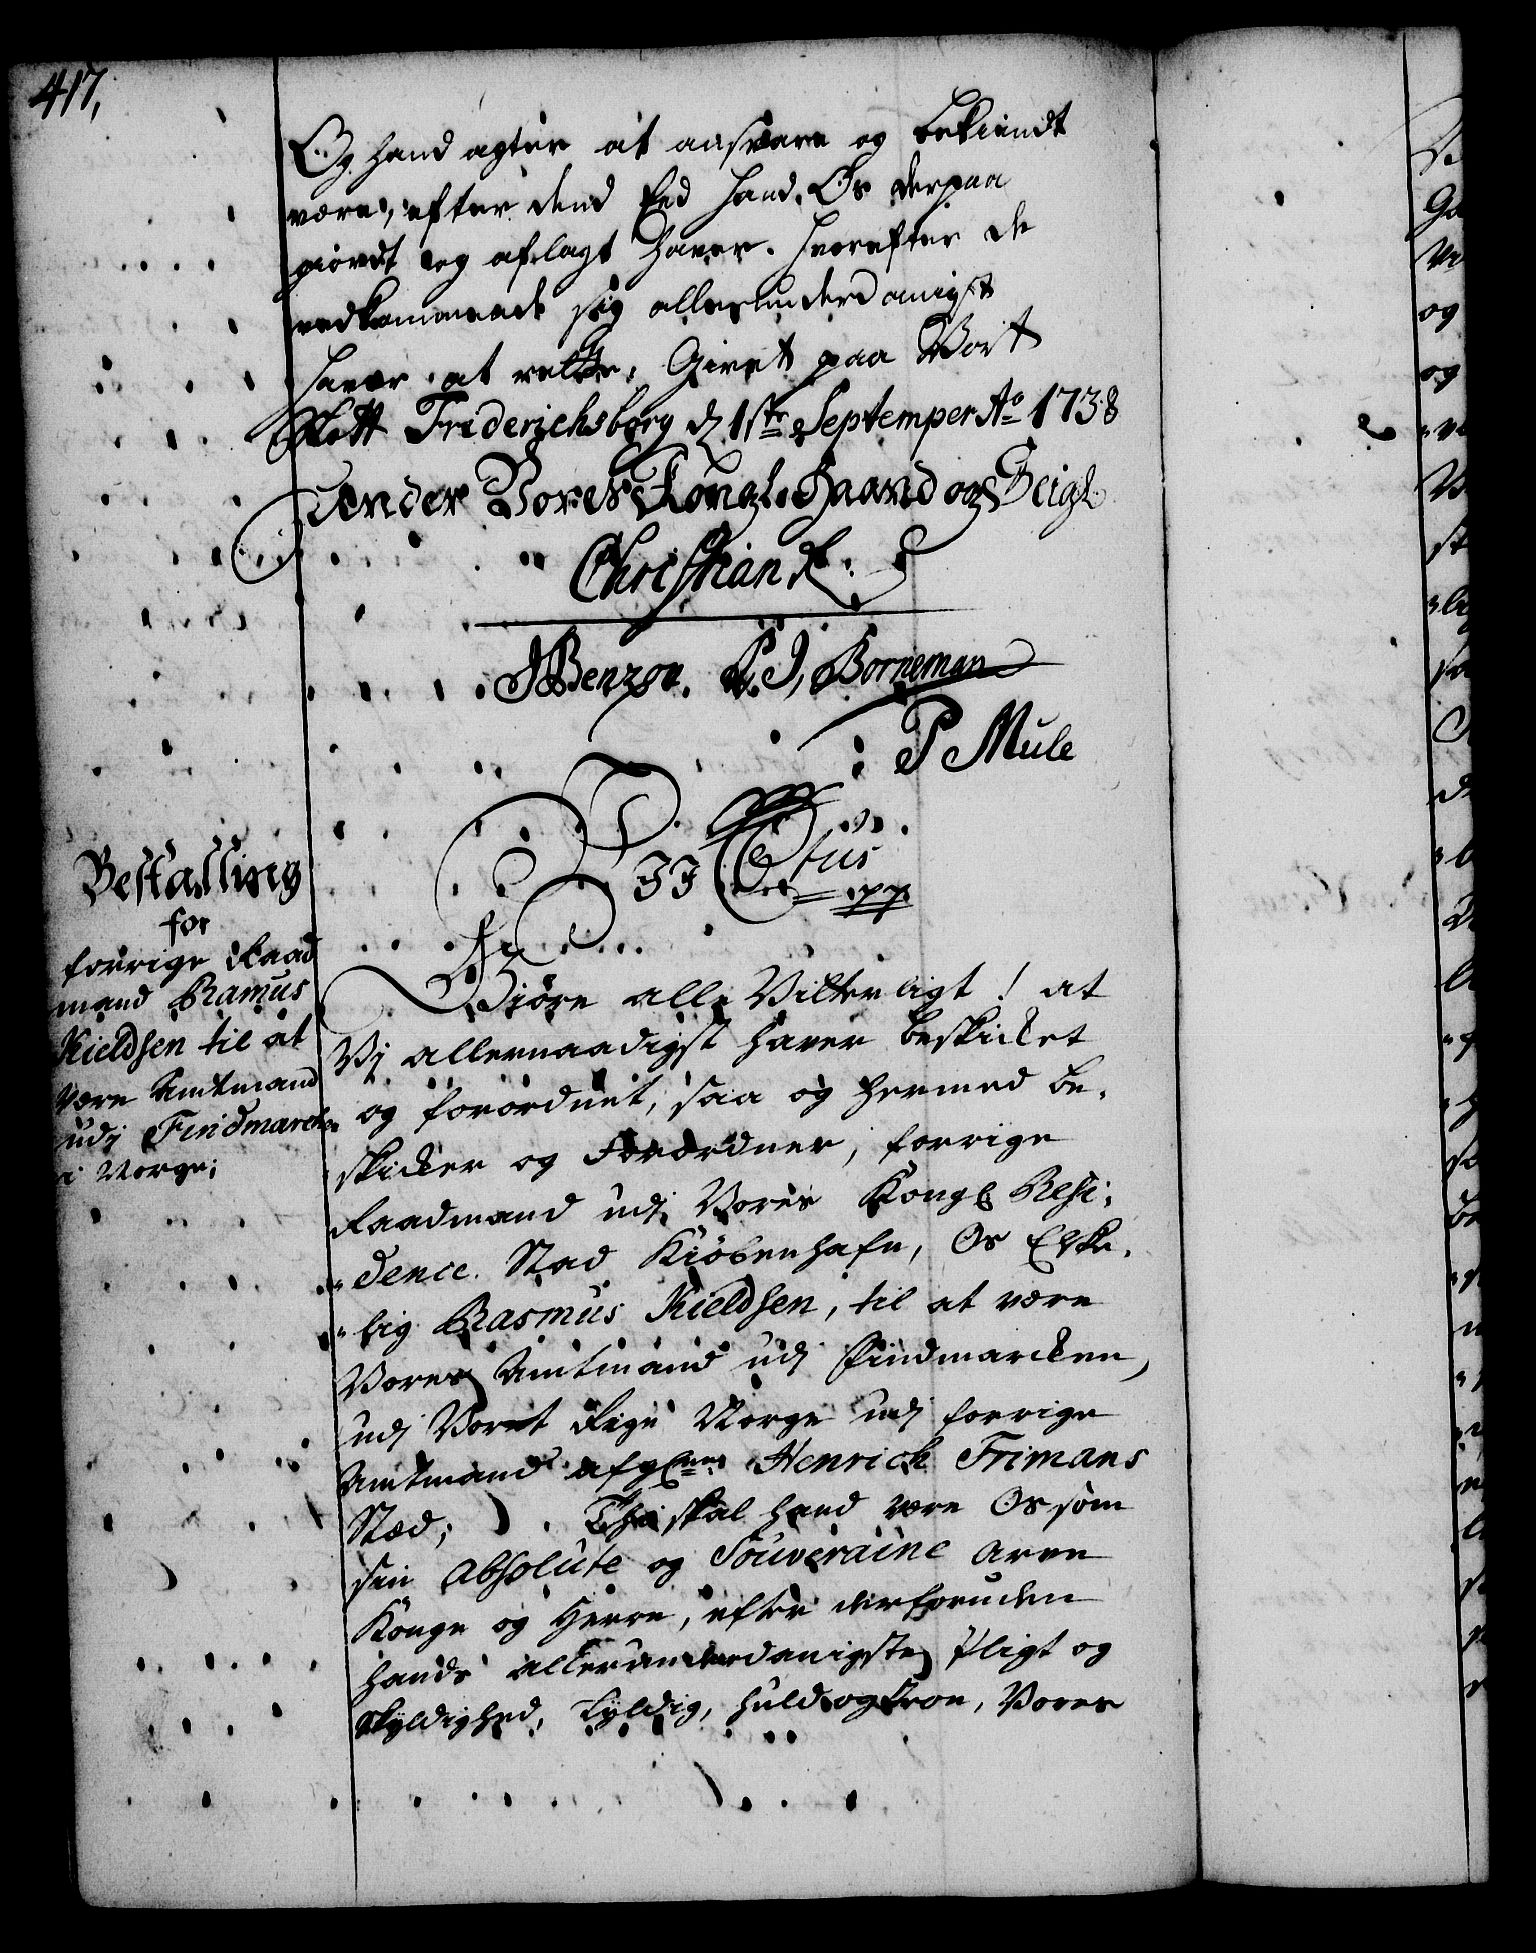 417,
Og hand agter at ansvare og bekiendt
være, efter dend Eed hand Os derpaa
giordt og aflagt haver. Hvorefter de
vedkommende sig allerunderdanigst
haver at rette, Givet paa Vort
Slott Friderichsborg d 1ste Septemper Ao 1738
Under Vores Kongl. Haand og Seigl.
Christian R.
JBenzon. C. J, Borneman
P Mule
Bestalling
for
forrige Raad
mand Ramus
Kieldsen til at
være Amtmand
udj Findmarcken
i Norge;
Giøre alle Vitterligt! at
Vj allernaadigst haver beskicket
og forordnet, saa og hermed be,
skicker og Forordner, forrige
Raadmand udj Vores Kongl Resi,
dence Stad Kiøbenhafn, Os Elske,
lig Rasmus Kieldsen, til at være
Vores Amtmand udj Findmarcken,
udj Voret Rige Norge udj forrige
Amtmand afgl Henrick Frimans
Stæd; Thi skal hand være Os som
sin absolute og Souveraine Arve
Konge og Herre, efter derforuden
hands allerunderdanigste Pligt og
Skyldighed, Lyldig, huld og troe, Vores